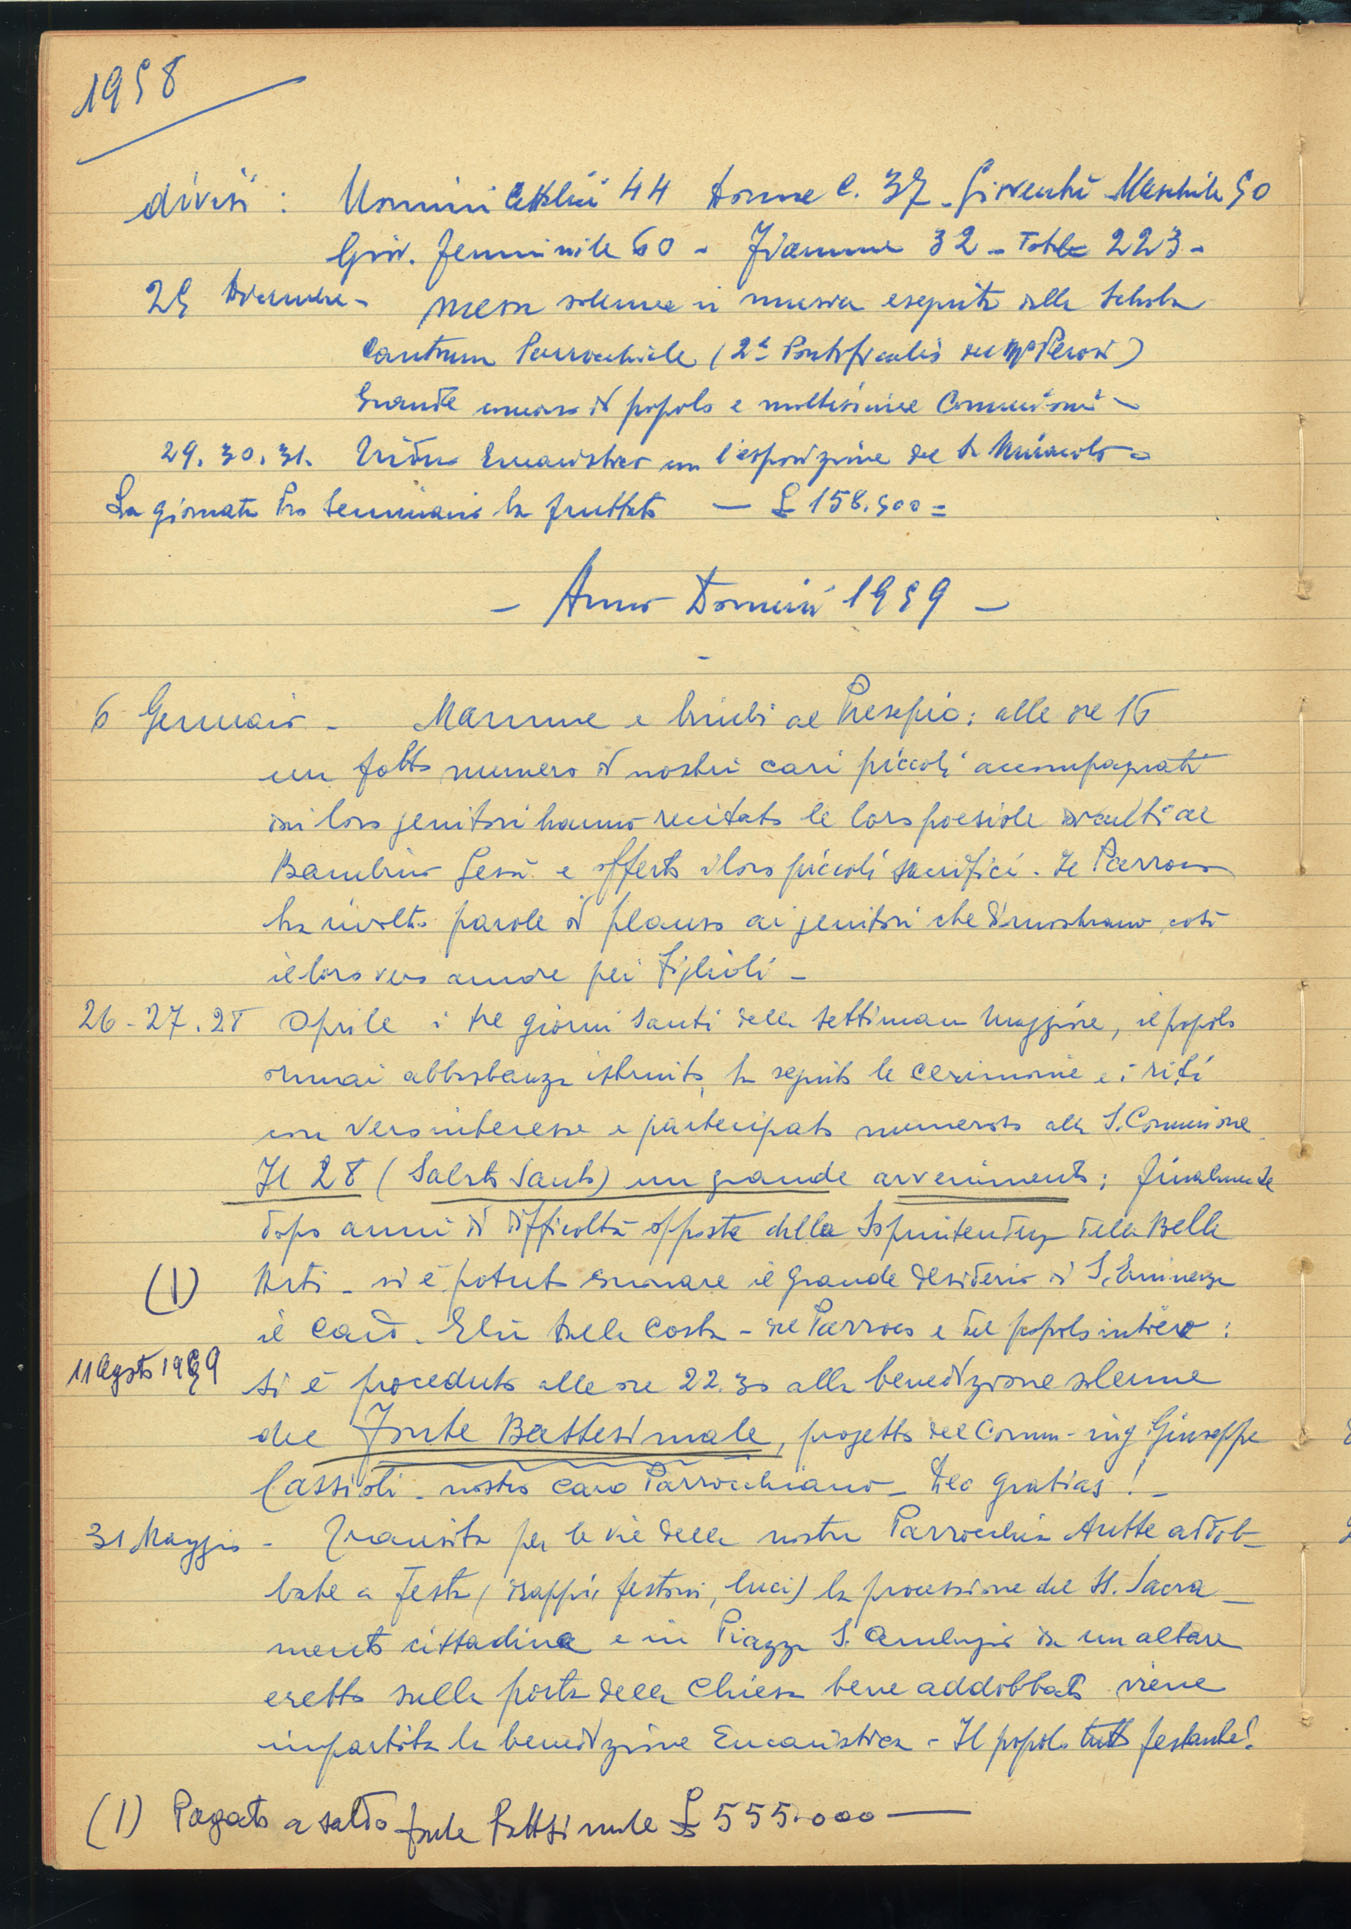 1958
divisi: Uomini Cattolici 44 Donne C. 37. Gioventù Maschile 50
Giov. femminile 60 - Fiamme 32 - Totale 223 -
25 Dicembre - Messa solenne in musica eseguita dalla Schola
Cantorum Parrocchiale (2ª Pontificalis del Mº Perosi)
Grande concorso di popolo e moltissime Comunioni -
29. 30. 31. Triduo Eucaristico con l'esposizione del S. Miracolo -
La giornata Pro Seminario ha fruttato — £ 158.500 =
- Anno Domini 1959 -
6 Gennaio - Mamme e bimbi al Presepio: alle ore 16
un folto numero di nostri cari piccoli accompagnati
dai loro genitori hanno recitato le loro poesiole davanti al
Bambino Gesù e offerto i loro piccoli sacrifici. Il Parroco
ha rivolto parole di plauso ai genitori che dimostrano così
il loro vero amore pei figlioli -
26 - 27. 28 Aprile i tre giorni Santi della Settimana Maggiore, il popolo
ormai abbastanza istruito, ha seguito le cerimonie e i riti
con vero interesse e partecipato numeroso alla S. Comunione
Il 28 (Sabato Santo) un grande avvenimento; finalmente
dopo anni di difficoltà opposte dalla Sopraintendenza delle Belle
Arti - si è potuto coronare il grande desiderio di S. Eminenza
(1)
il Card. Elia Dalla Costa - del Parroco e del popolo intiero:
11 Agosto 1959
si è proceduto alle ore 22.30 alla benedizione solenne
del Fonte Battesimale, progetto del Comm. ing. Giuseppe
Cassioli - nostro caro Parrocchiano - Deo gratias! -
31 Maggio - Transita per le vie della nostra Parrocchia tutte addob-
bate a festa (drappi, festoni, luci) la processione del SS. Sacra-
mento cittadina e in Piazza S. Ambrogio da un altare
eretto sulla porta della Chiesa bene addobbato viene
impartita la benedizione Eucaristica - Il popolo tutto festante!
(1) Pagato a saldo fonte Battesimale £ 555.000 —